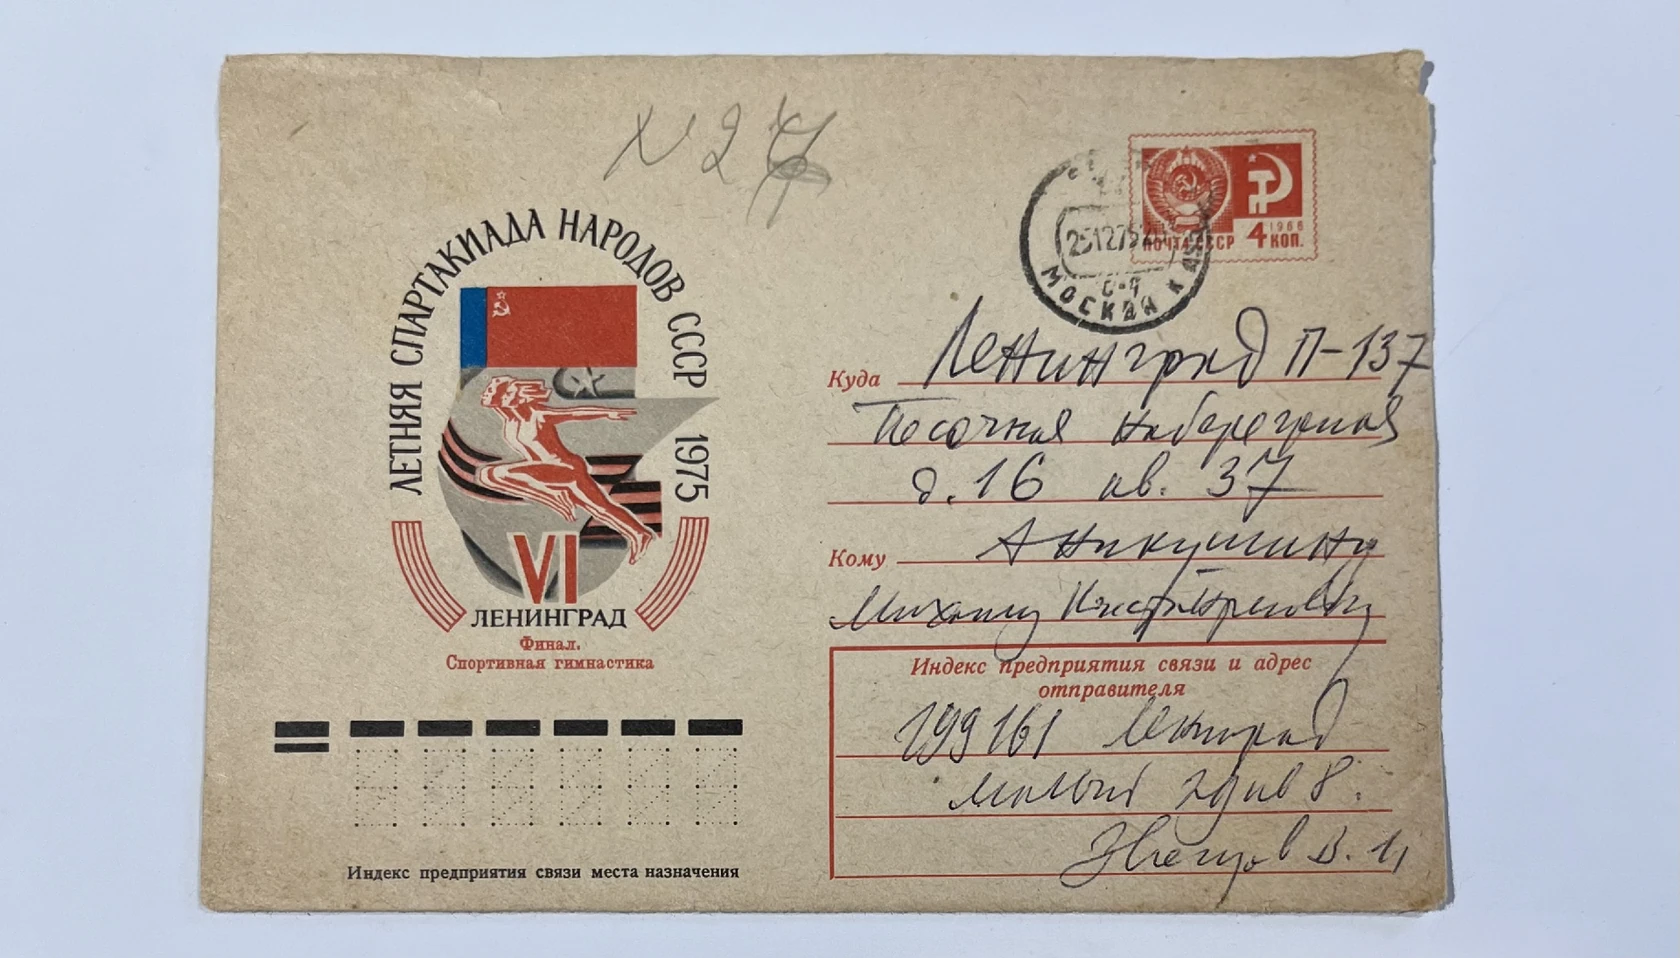 N 27
ЛЕТНЯЯ СПАРТАКИАДА НАРОДОВ СССР 1975
VI
ЛЕНИНГРАД
Финал.
Спортивная гимнастика
ПОЧТА СССР 4 КОП.
1966
251275
МОСКВА
Куда Ленинград П-137
Песочная набережная
д. 16 кв. 37
Кому Аникушину
Михаилу Константиновичу
Индекс предприятия связи и адрес
отправителя
199161 Ленинград
Малый 8.
В. И
Индекс предприятия связи места назначения